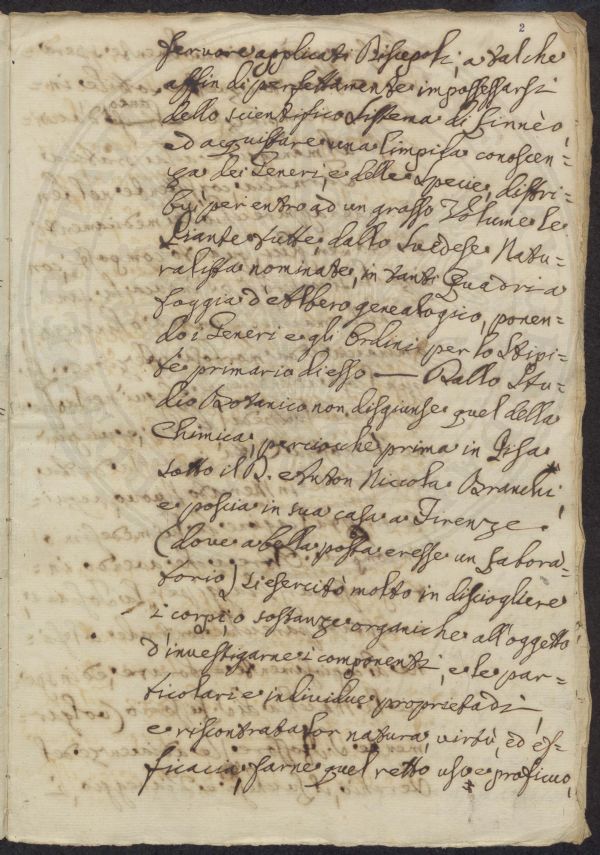 2
fervore applicati Discepoli, a tal che
affin di perfettamente impossessarsi
dello scientifico Sistema di Linnèo,
ed acquistare una limpida conoscen=
za dei Generi, e delle Specie, distri=
buì per entro ad un grosso Volume le
Piante tutte, dallo Svedese Natu=
ralista nominate, in tanti Quadri a
foggia d'Albero genealogico, ponen=
do i Generi e gli Ordini per lo Stipi=
te primario di esso — Dallo Stu=
dio Botanico non disgiunse quel della
Chimica, perciocchè prima in Pisa
sotto il D. Anton Niccola Branchi
e poscia in sua casa a Firenze
(dove a bella posta eresse un Labora=
torio) si esercitò molto in disciogliere
i corpi, o sostanze organiche all'oggetto
d'investigarne i componenti, e le par=
ticolari e individue proprietadi,
e riscontrata lor natura, virtù, ed ef=
ficacia, farne quel retto uso e proficuo,